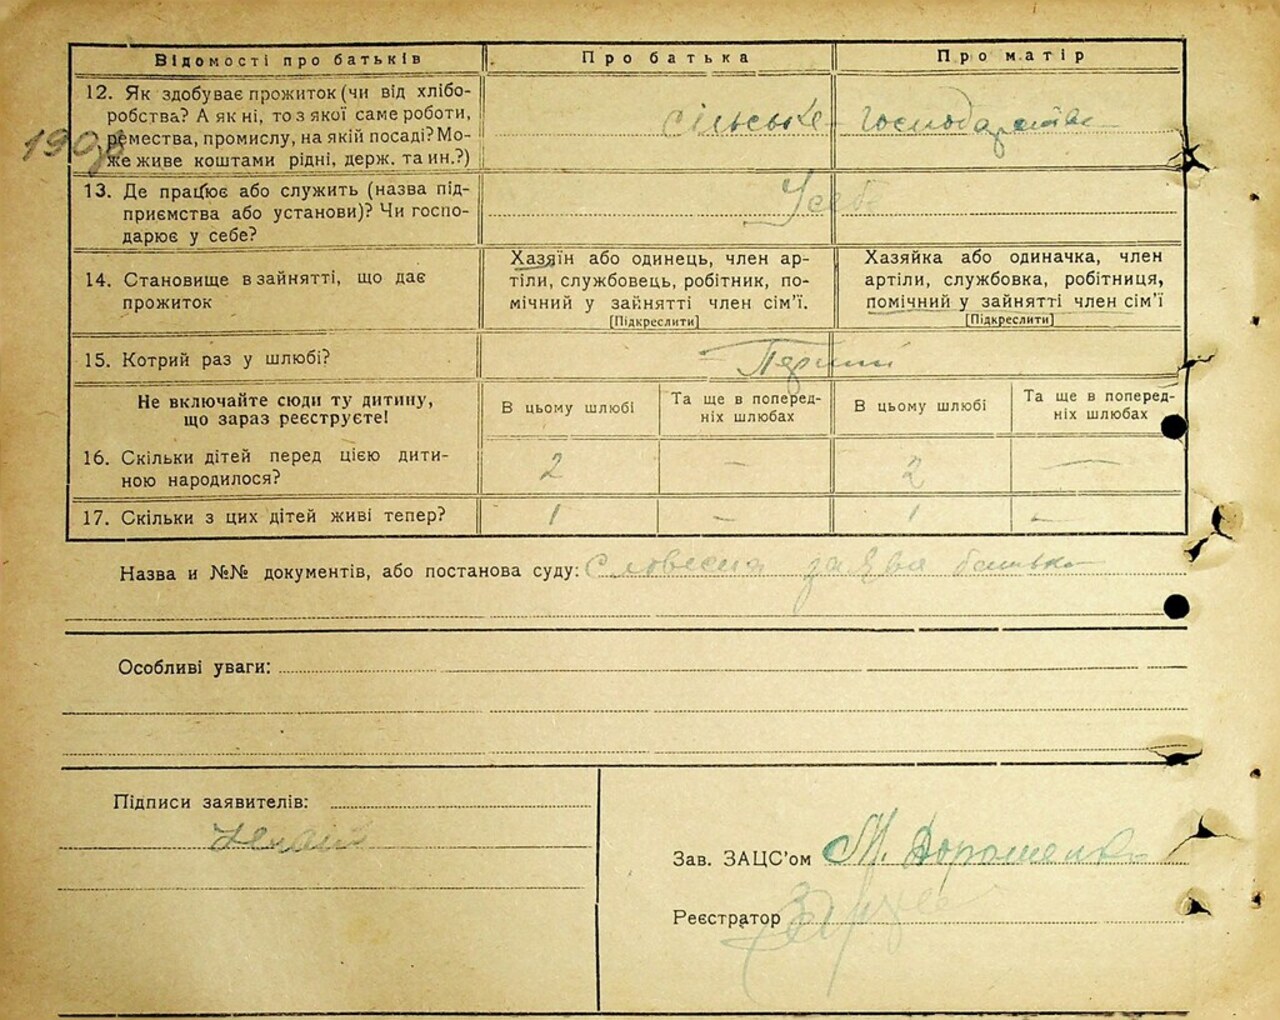 Відомості про батьків Про батька Про матір
12. Як здобуває прожиток (чи від хлібо-
робства? А як ні, то з якої саме роботи,
ремества, промислу, на якій посаді? Мо-
же живе коштами рідні, держ. та ин.?)
сільське господарство
190
13. Де працює або служить (назва під-
приємства або установи)? Чи госпо-
дарює у себе?
У себе
14. Становище в зайнятті, що дає
прожиток
Хазяїн або одинець, член ар-
тіли, службовець, робітник, по-
мічний у зайнятті член сім'ї.
[Підкреслити]
Хазяйка або одиначка, член
артіли, службовка, робітниця,
помічний у зайнятті член сім'ї
[Підкреслити]
15. Котрий раз у шлюбі?
Перший
Не включайте сюди ту дитину,
що зараз реєструєте!
В цьому шлюбі
Та ще в поперед-
ніх шлюбах
В цьому шлюбі
Та ще в поперед-
ніх шлюбах
16. Скільки дітей перед цією дити-
ною народилося?
2 – 2 –
17. Скільки з цих дітей живі тепер? 1 – 1 –
Назва и №№ документів, або постанова суду: Словесна заява батька
Особливі уваги:
Підписи заявителів:
Зав. ЗАЦС'ом М. Дорошенко
Реєстратор